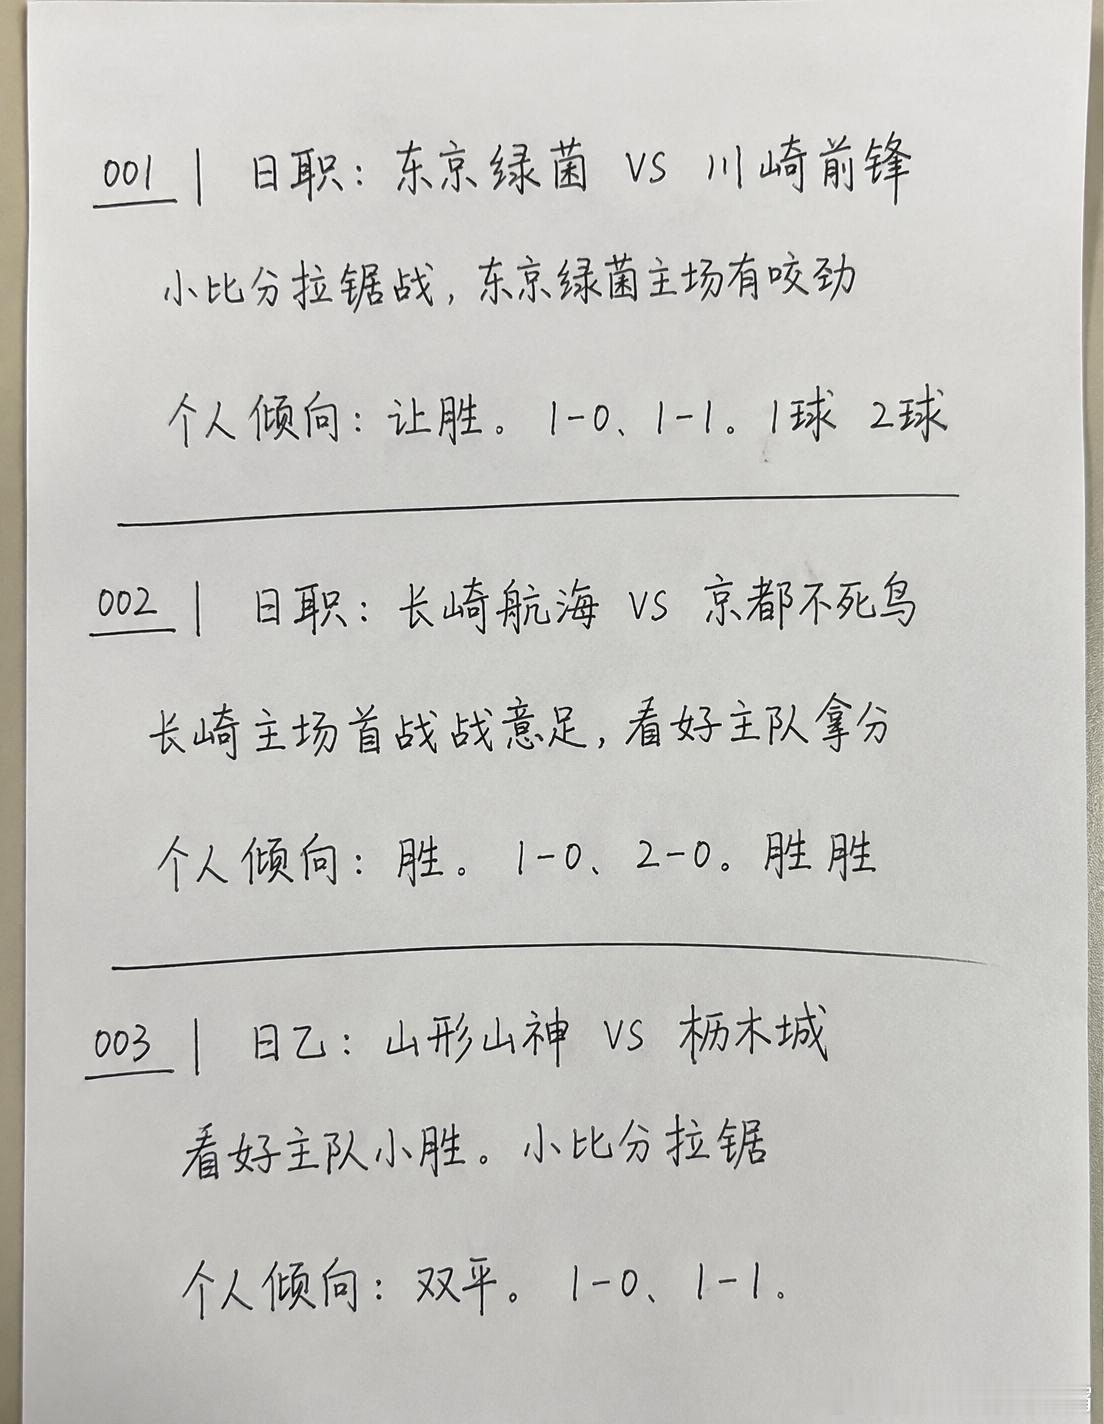 001 | 日职：东京绿菌 VS 川崎前锋
小比分拉锯战，东京绿菌主场有咬劲
个人倾向：让胜。1-0、1-1。1球 2球
002 | 日职：长崎航海 VS 京都不死鸟
长崎主场首战战意足，看好主队拿分
个人倾向：胜。1-0、2-0。胜胜
003 | 日乙：山形山神 VS 枥木城
看好主队小胜。小比分拉锯
个人倾向：双平。1-0、1-1.